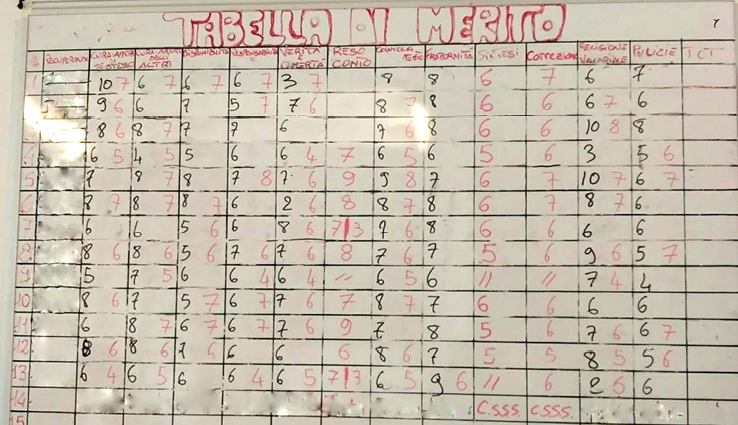 TABELLA DI MERITO
7
CURA AUTOR. DI SE STESSO CURA AUTOR. DEGLI ALTRI DISPONIBILITÀ RESPONSABILITÀ VERITÀ E OMERTÀ RESO CONTO FRATERNITÀ SINTESI CORREZIONE DECISIONE VOCAZIONALE PULIZIE TOT
1 10 7 6 7 6 7 6 7 3 7 8 8 6 7 6 7
9 6 6 7 5 7 7 6 8 8 6 6 6 7 6
8 6 8 7 7 7 6 7 6 8 6 6 10 8 8
6 5 4 5 5 6 6 4 7 6 5 6 5 6 3 5 6
5 7 8 7 8 7 8 7 6 9 9 8 7 6 7 10 7 6 7
6 8 7 8 7 8 7 6 2 6 8 8 7 8 6 7 8 7 6
7 6 6 5 6 6 8 6 7/3 7 6 8 6 6 6 6
8. 8 6 8 6 5 6 7 6 7 6 8 7 6 7 5 6 9 6 5 7
9 5 7 5 6 6 4 6 4 // 6 5 6 // // 7 4 4
10 8 6 7 5 7 6 7 7 6 7 8 7 7 6 6 6 6
11 6 8 7 6 7 6 7 7 6 9 7 8 5 6 7 6 6 7
12. 8 6 8 6 7 6 6 6 6 8 6 7 5 5 8 5 5 6
13 6 4 6 5 6 6 4 6 5 7/3 6 5 9 6 // 6 2 6 6
14 C.S.S.S. C.S.S.S.
15